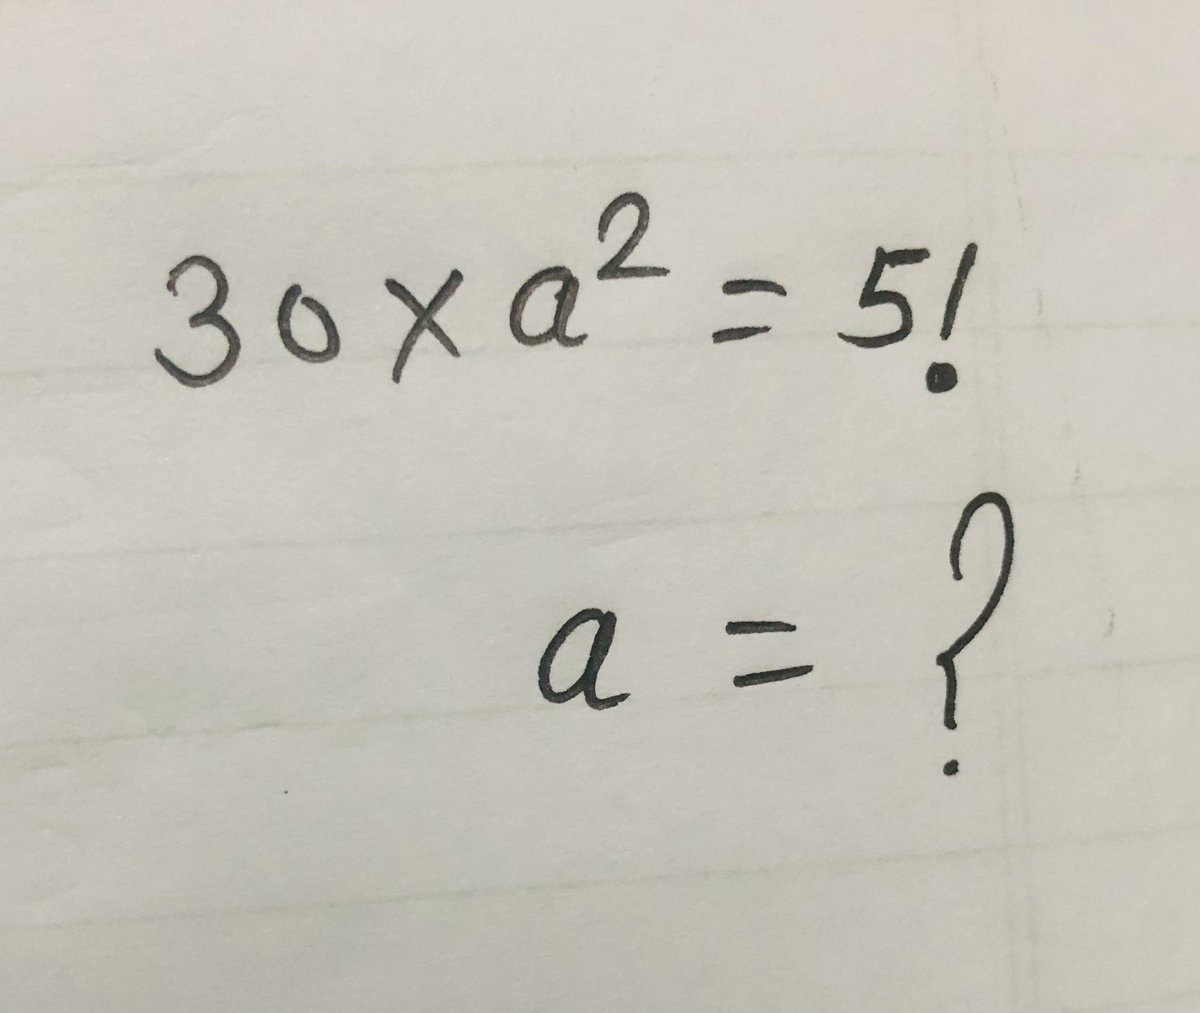 30 × a² = 5!
a = ?